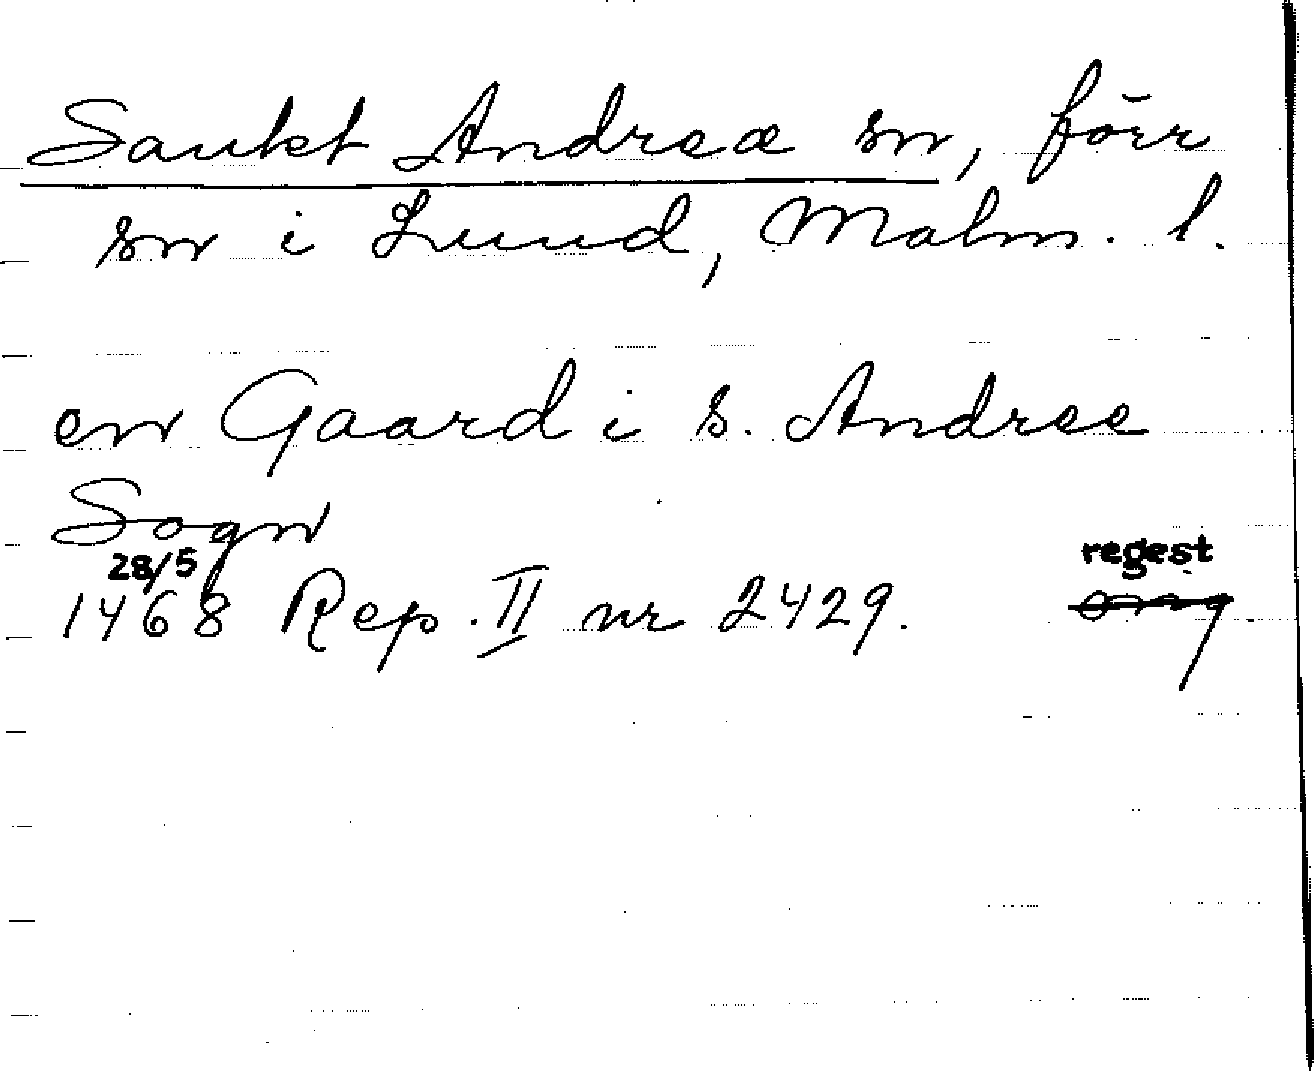 Sankt Andreæ sn, förr
sn i Lund, Malm. l.
en Gaard i S. Andree
Sogn
28/5
1468 Rep. II nr 2429.
regest